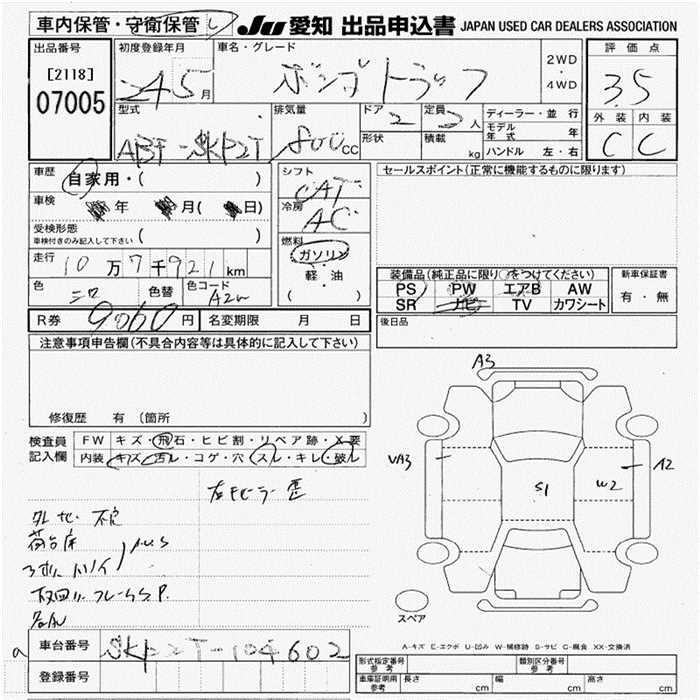 車内保管・守衛保管 レ
JU 愛知 出品申込書 JAPAN USED CAR DEALERS ASSOCIATION
出品番号
[2118]
07005
初度登録年月
24 5 月
車名・グレード
ボンゴトラック
2WD
・
4WD
評価点
3.5
外装 内装
C C
型式
ABF-SKP2T
排気量
1800 CC
ドア
2
定員
2人
形状
積載
kg
ディーラー・並行
モデル年式 年
ハンドル 左・右
車歴
自家用・( )
車検
年 月( 日)
受検形態
車検付きのみ記入して下さい ( )
走行
10万7千921km
色
シロ
色替
色コード
A2W
シフト
CAT
冷房
AC
燃料
ガソリン
・
軽・油
( )
セールスポイント(正常に機能するものに限ります)
装備品(純正品に限り○をつけてください)
PS PW エアB AW
SR ナビ TV カワシート
新車保証書
有・無
R券 9060円
名変期限 月 日
後日品
注意事項申告欄(不具合内容等は具体的に記入して下さい)
修復歴 有(箇所 )
検査員
記入欄
FW キズ・飛石・ヒビ割・リペア跡・X要
内装 キズ・汚レ・コゲ・穴・スレ・キレ・破ル
A3
VA3
A2
S1
W2
スペア
A-キズ E-エクボ U-凹み W-補修跡 S-サビ C-腐食 XX-交換済
車台番号
SKP2T-104602
登録番号
形式指定番号
参考
類別区分番号
参考
車庫証明用
参考
長さ cm
幅 cm
高さ cm